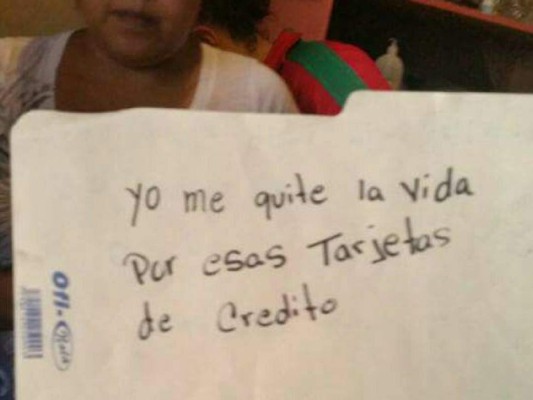 Yo me quite la vida
Por esas Tarjetas
de Credito